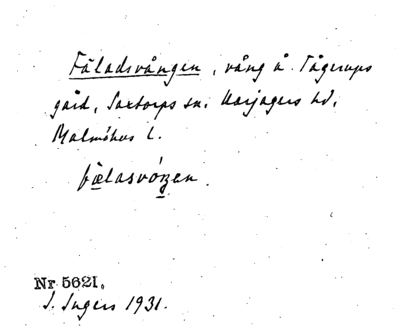 Fäladsvången, vång å Tågerups
gård, Saxtorps sn. Harjagers hd,
Malmöhus l.
fælasvóŋen.
Nr 5621.
I. Ingers 1931.